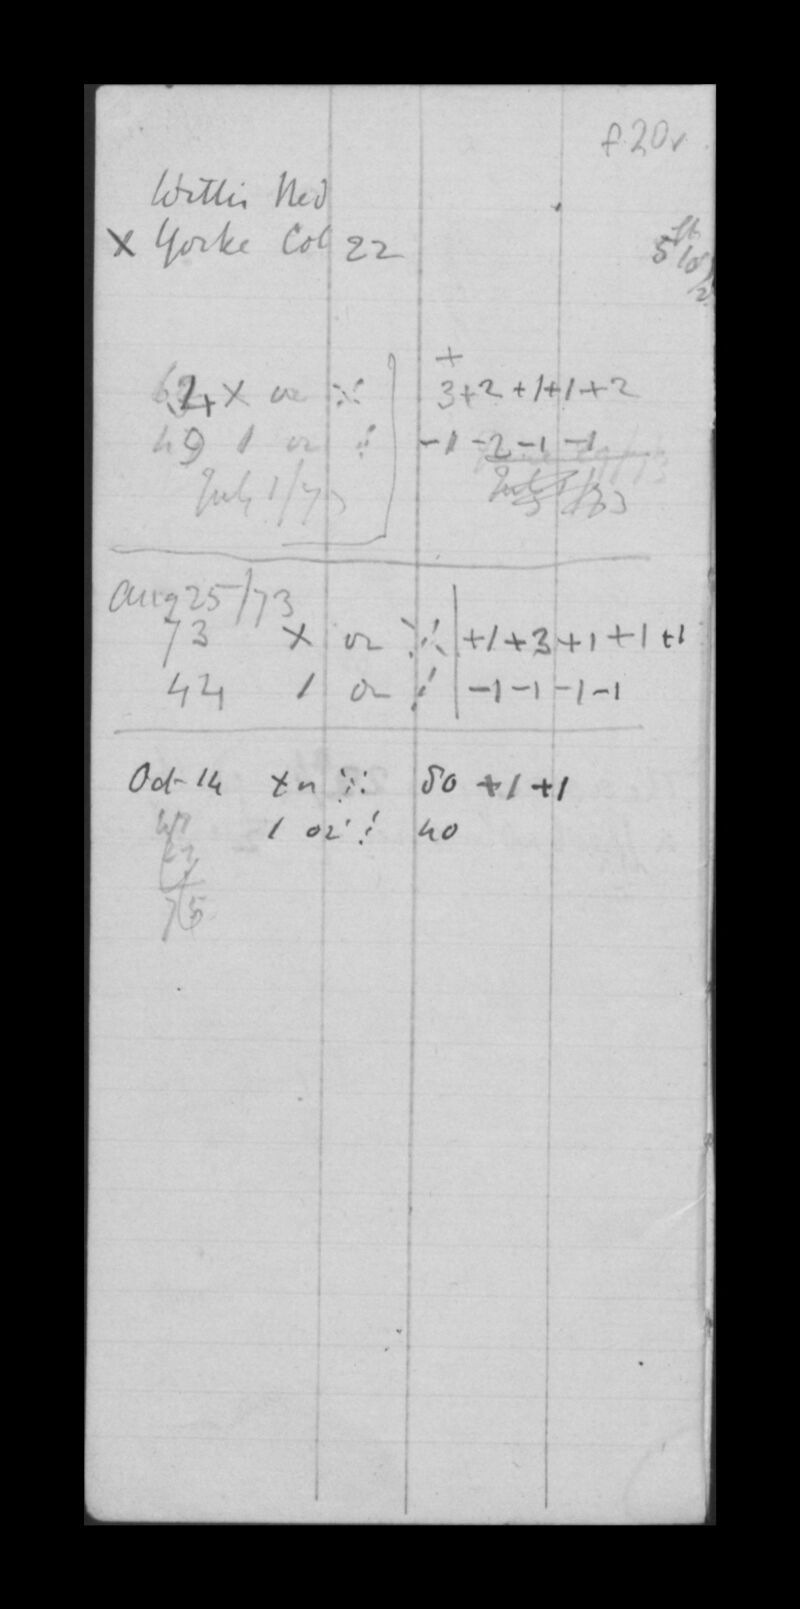 f. 20r
Willis Ned
X Yorke Col 22
5 ft
+
64 X or ⁙ 3+2+1+1+2
49 1 or ⁝ -1-2-1-1
July 1/73
Aug 25/73
73 x or ⁙ +1+3+1+1+1
44 1 or ⁝ -1-1-1-1
Oct 14 x or ⁙ 80 +1+1
1 or ⁝ 40
75